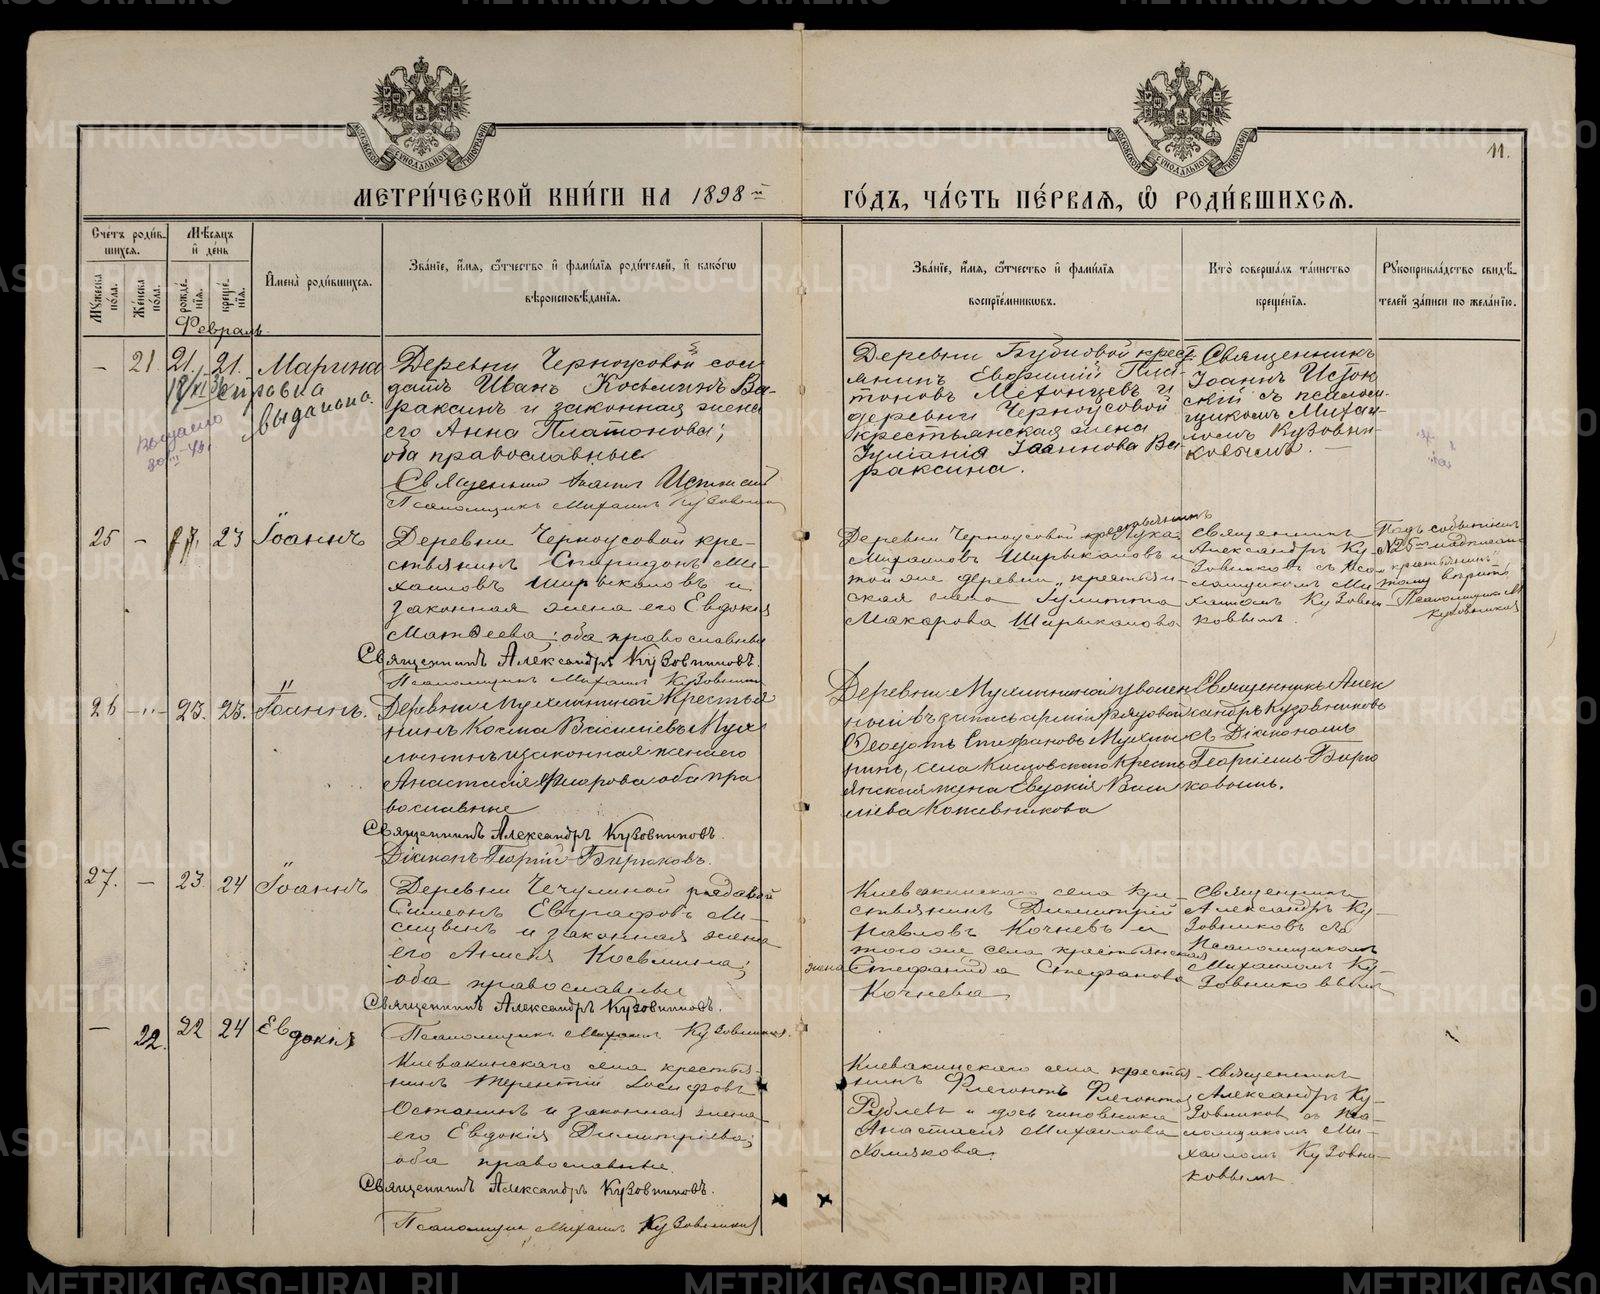 11.
МЕТРИ́ЧЕСКОЙ КНИ́ГИ НА 1898й ГО́ДЪ, ЧА́СТЬ ПЕ́РВАѦ, Ѡ РОДИ́ВШИХСѦ.
Сче́тъ роди́в-
шихсѧ.
Мꙋ́жеска по́ла.
Же́нска по́ла.
Мѣ́сѧцъ
и҆ де́нь
рожде́нїѧ.
креще́нїѧ.
И҆мена̀ роди́вшихсѧ.
Зва́нїе, и҆́мѧ, ѻ҆́тчество и҆ фами́лїѧ роди́телей, и҆ како́гѡ
вѣроисповѣ́данїѧ.
Зва́нїе, и҆́мѧ, ѻ҆́тчество и҆ фами́лїѧ
воспрїе́мникѡвъ.
Кто̀ соверша́лъ та́инство
креще́нїѧ.
Рꙋкоприкла́дство свидѣ́-
телей за́писи по жела́нїю.
Февраль.
— 21 21. 21. Марина
справка
выдана.
выдано
Деревни Черноусовой сол
датъ Иванъ Косьминъ Ва-
раксинъ и законная жена
его Анна Платонова;
оба православные.
Священникъ Іоаннъ
Псаломщикъ Михаилъ Кузовников
Деревни Бубновой крест
янинъ Евфимій Пла-
тоновъ и
деревни Черноусовой
крестьянская жена
Іуліанія Іоаннова Ва-
раксина.
Священникъ
Іоаннъ
скій съ псалом-
щикомъ Михаи-
ломъ Кузовни-
ковымъ.
25 — 23 Іоаннъ
Деревни Черноусовой кре-
стьянинъ Спиридонъ Ми-
хаиловъ Ширыкаловъ и
законная жена его Евдокія
Матвеева; оба православные
Священникъ Александръ Кузовниковъ.
Псаломщикъ Михаилъ Кузовников
Деревни Черноусовой крестьянинъ Лука
Михаиловъ Ширыкаловъ и
той же деревни крестьян-
ская жена Іулитта
Макарова Ширыкалова
Священникъ
Александръ Ку-
зовниковъ съ псало-
мщикомъ Ми-
хаиломъ Кузовни-
ковымъ.
Подъ событіемъ
№25 надписан-
"крестьянинъ"
тому вѣрить
Псаломщикъ М
Кузовников
26 —"— 23. 23. Іоаннъ.
Деревни Мухлыниной Крестья
нинъ Косма Василіевъ Мух
лынинъ и законная жена его
Анастасія Флорова оба пра
вославные
Священникъ Александръ Кузовниковъ.
Діаконъ Георгій Бирюковъ.
Деревни Мухлыниной уволен
ный въ запасъ арміи рядовой
Ѳеодотъ Стефановъ Мухлы
нинъ, села Кисловскаго Кресть
янская жена Евдокія Васи
лиева Кожевникова
Священникъ Алек
сандръ Кузовниковъ
съ Діакономъ
Георгіемъ Бирю
ковымъ.
27. — 23. 24 Іоаннъ
Деревни Чечулиной рядовой
Симеонъ Евграфовъ Ми-
и законная жена
его Анисія Косьмина;
оба православные
Священникъ Александръ Кузовниковъ.
Псаломщикъ Михаилъ Кузовников.
Клевакинскаго села кре-
стьянинъ Димитрій
Павловъ Кочневъ и
того же села крестьянская
жена Стефанида Стефанова
Кочнева
Священникъ
Александръ Ку-
зовниковъ съ
Псаломщикомъ
Михаиломъ Ку-
зовниковымъ
— 22. 22 24 Евдокія
Клевакинскаго села крестья-
нинъ Терентій Іосифовъ
Останинъ и законная жена
его Евдокія Димитріева;
оба православные.
Священникъ Александръ Кузовниковъ.
Псаломщикъ Михаилъ Кузовников
Клевакинскаго села крестья-
нинъ Флегонтъ Флегонтов
Рублевъ и дочь чиновника
Анастасія Михаилова
Холмякова.
Священникъ
Александръ Ку-
зовниковъ съ пса-
ломщикомъ Ми-
хаиломъ Кузовни-
ковымъ